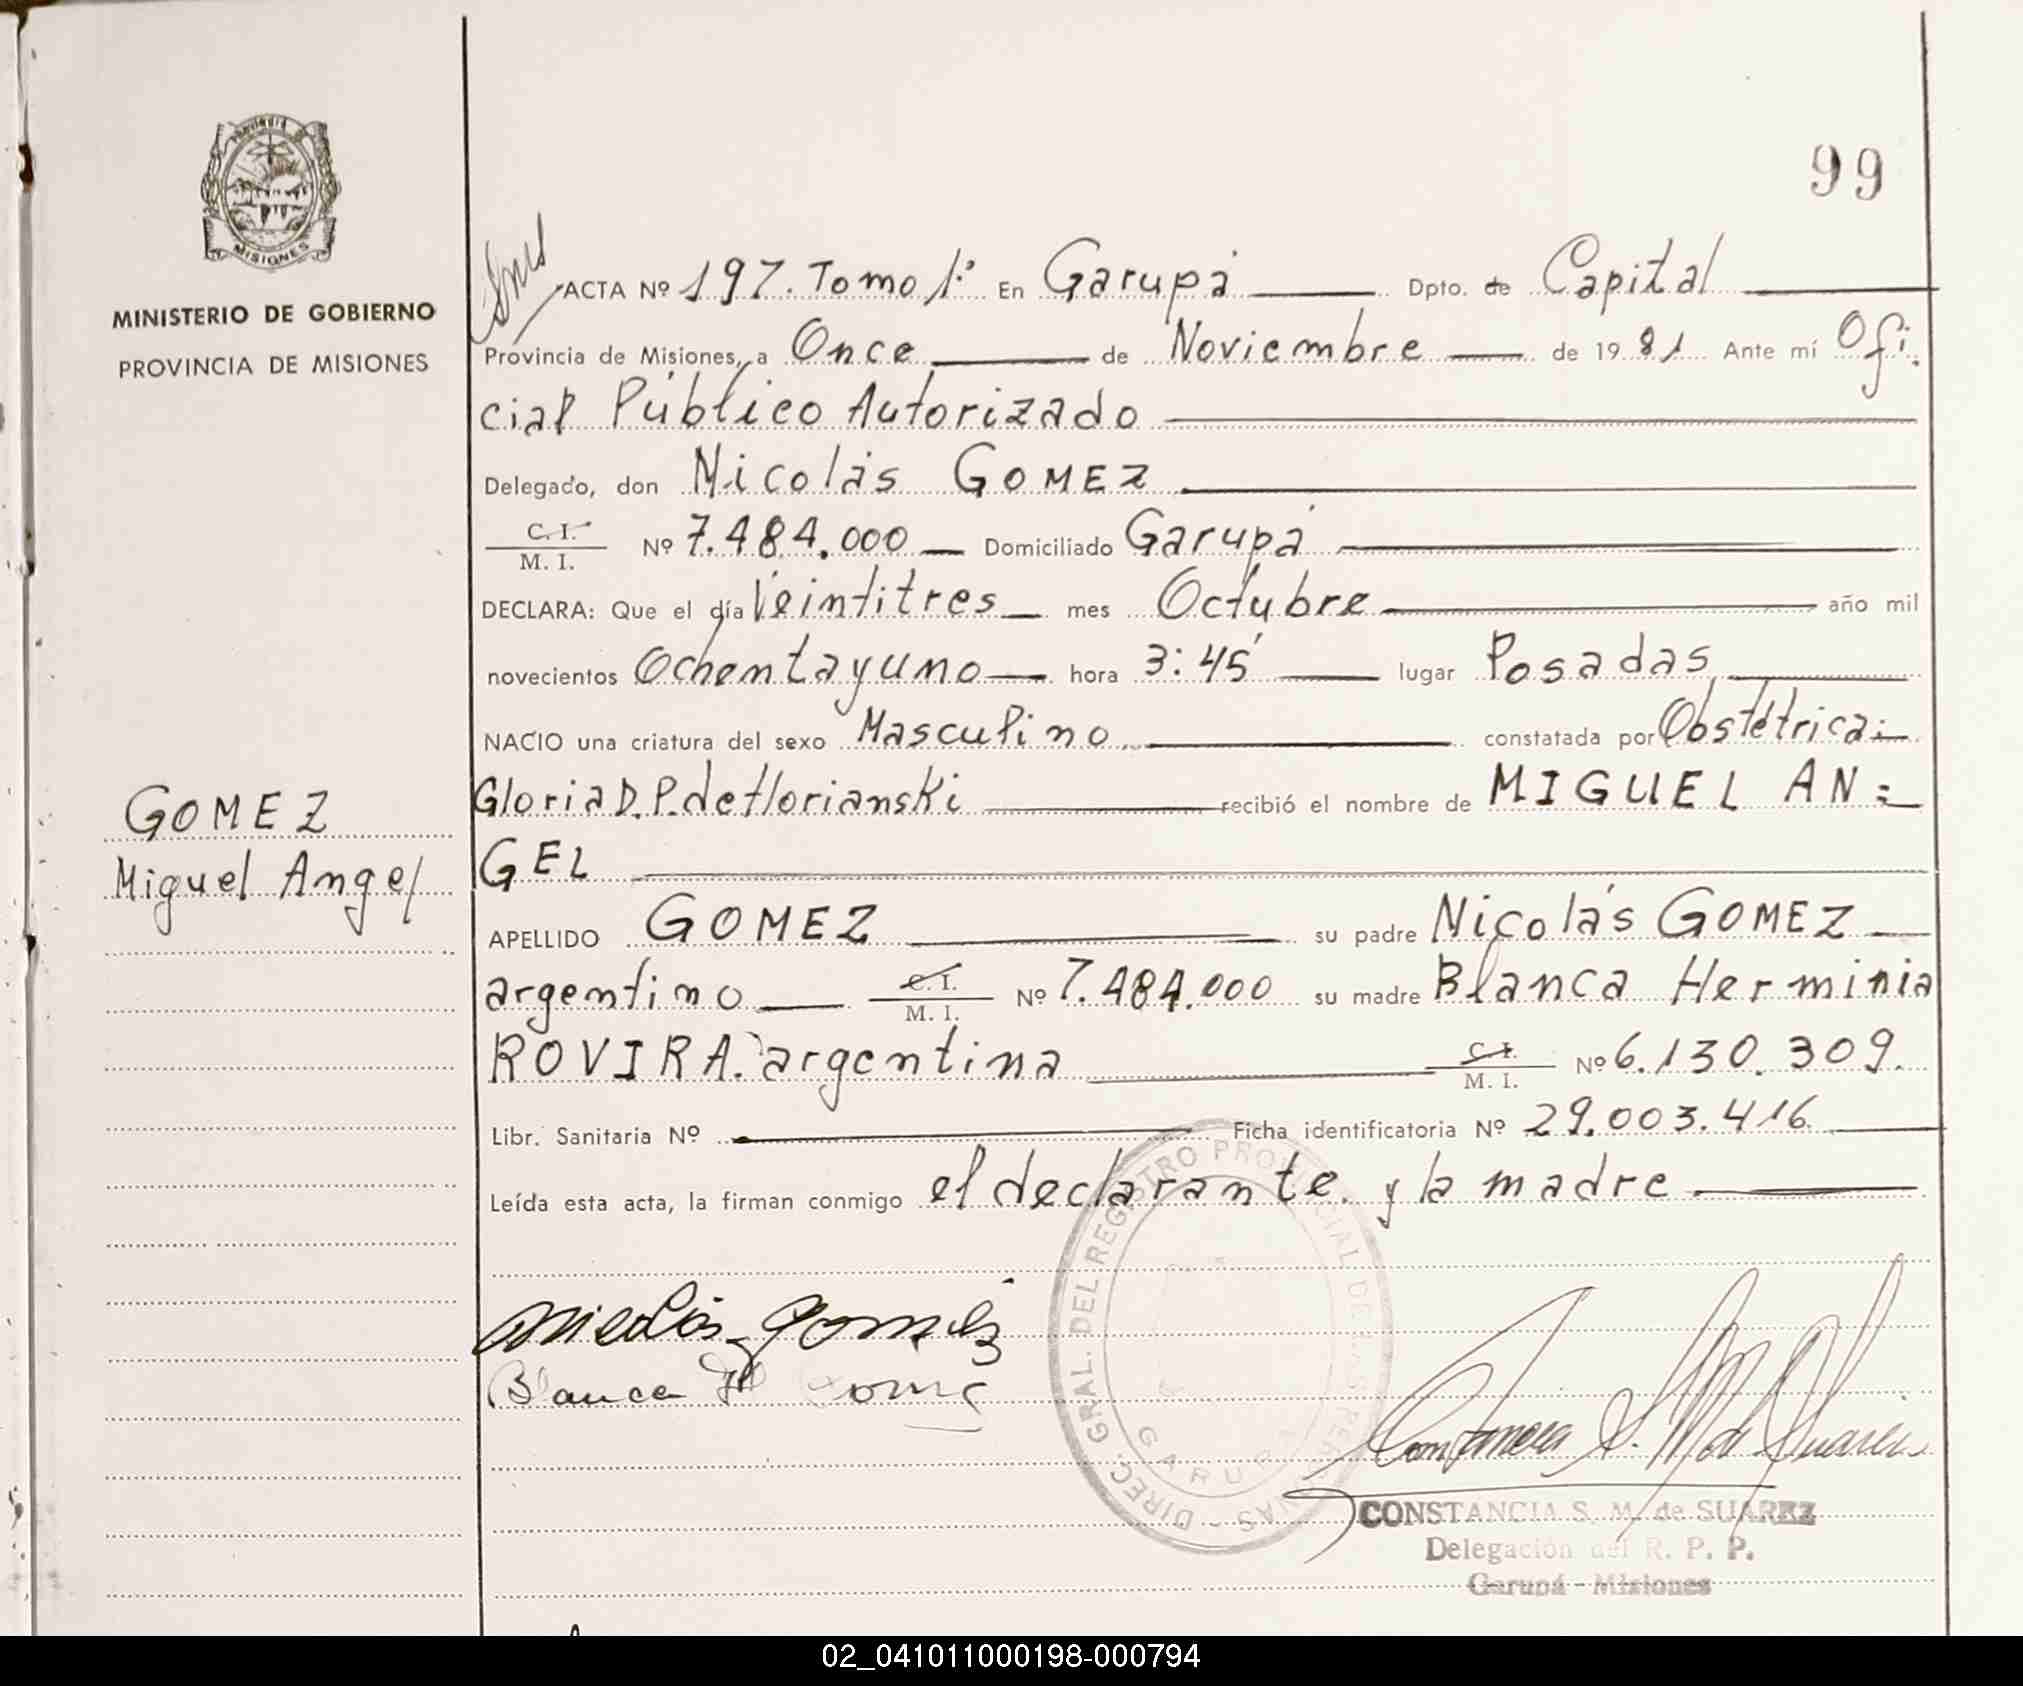 MISIONES
MINISTERIO DE GOBIERNO
PROVINCIA DE MISIONES
99
ACTA Nº 197. Tomo 1º En Garupá Dpto. de Capital
Provincia de Misiones, a Once de Noviembre de 1981 Ante mí Ofi.
cial Público Autorizado
Delegado, don Nicolás GOMEZ
C. I.
M. I. Nº 7.484.000 Domiciliado Garupá
DECLARA: Que el día Veintitres mes Octubre año mil
novecientos Ochentayuno hora 3:45' lugar Posadas
NACIO una criatura del sexo Masculino constatada por Obstétrica:
Gloria D. P. de florianski recibió el nombre de MIGUEL AN=
GEL
GOMEZ
Miguel Angel
APELLIDO GOMEZ su padre Nicolás GOMEZ
argentino C. I. M. I. Nº 7.484.000 su madre Blanca Herminia
ROVIRA. argentina C. I. M. I. Nº 6.130.309.
Libr. Sanitaria Nº Ficha identificatoria Nº 29.003.416
Leída esta acta, la firman conmigo el declarante. y la madre
Nicolás Gomez
Blanca
DIREC. GRAL. DEL REGISTRO PROVINCIAL DE LAS PERSONAS - GARUPA
CONSTANCIA S. M. de SUAREZ
Delegación del R. P. P.
Garupá - Misiones
02_041011000198-000794